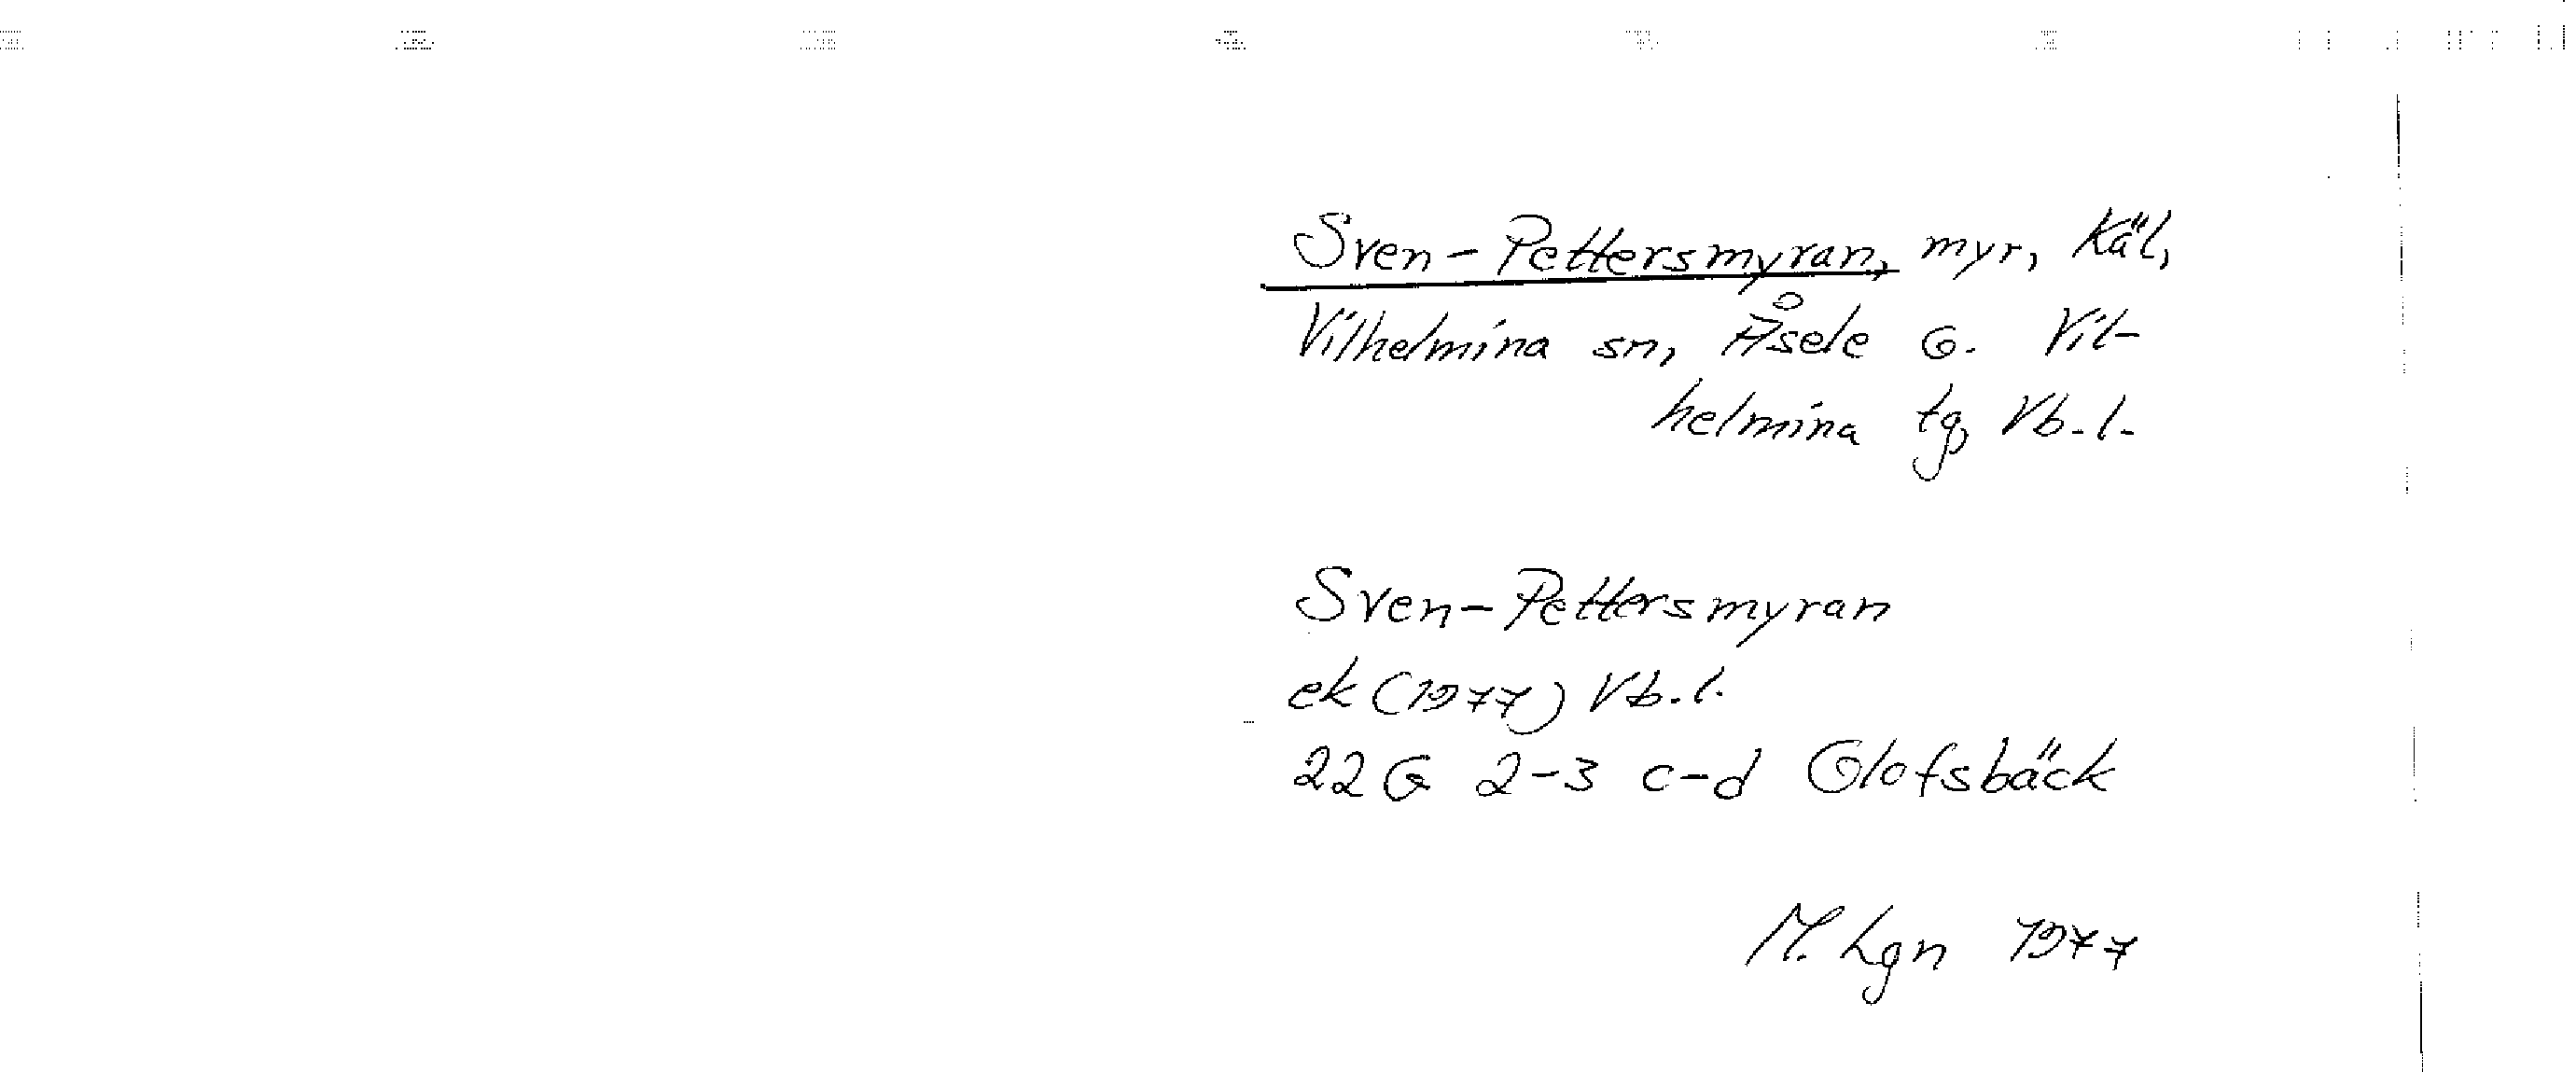 Sven-Pettersmyran, myr, Käl,
Vilhelmina sn, Åsele o. Vil-
helmina tg, Vb.l.
Sven-Pettersmyran
ek (1977) Vb.l.
22 G 2-3 c-d Olofsbäck
M. Lgn 1977